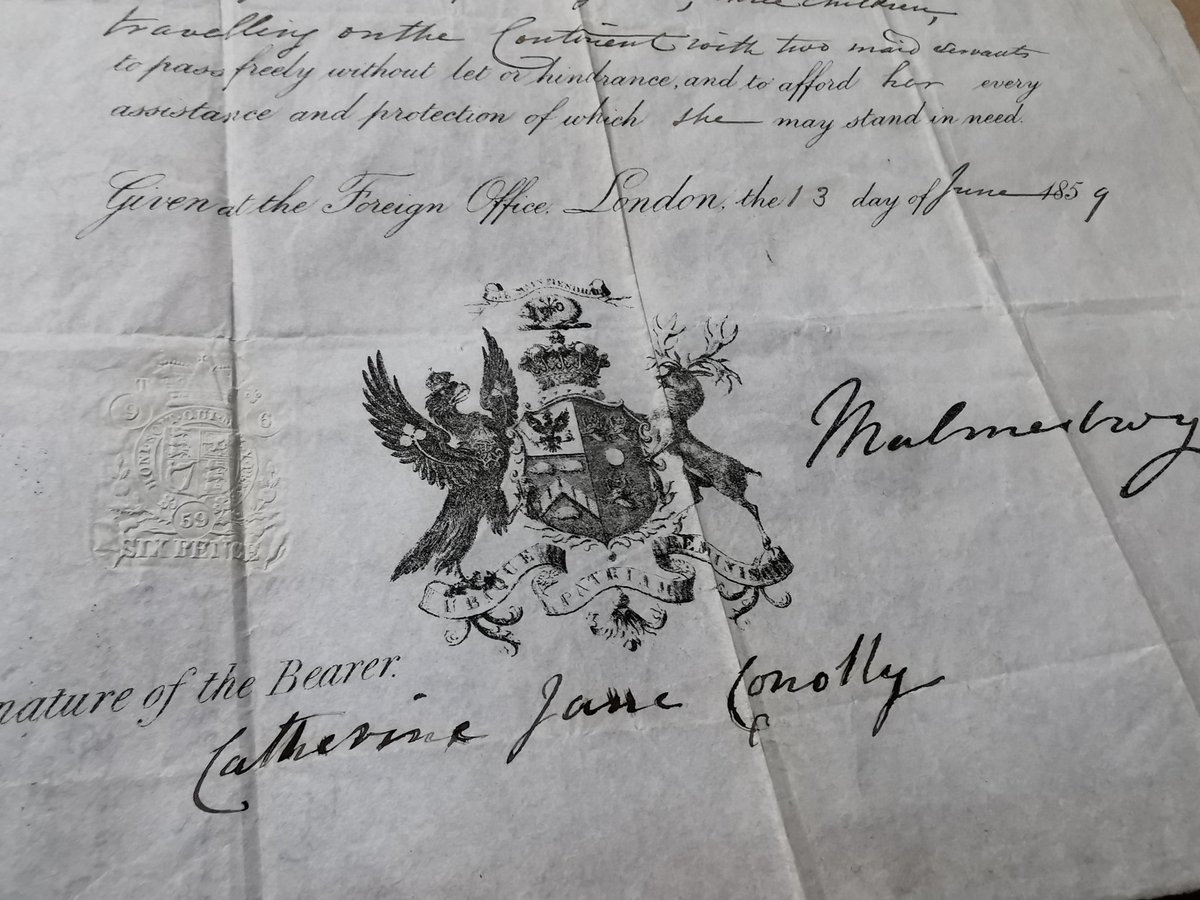 three children,
travelling on the Continent with two maid servants
to pass freely without let or hindrance, and to afford her every
assistance and protection of which she may stand in need.
Given at the Foreign Office, London, the 13 day of June 1859
Malmesbury
UBIQUE PATRIAM REMINISCI
HONI SOIT QUI MAL Y PENSE
59
SIX PENCE
nature of the Bearer.
Catherine Jane Conolly